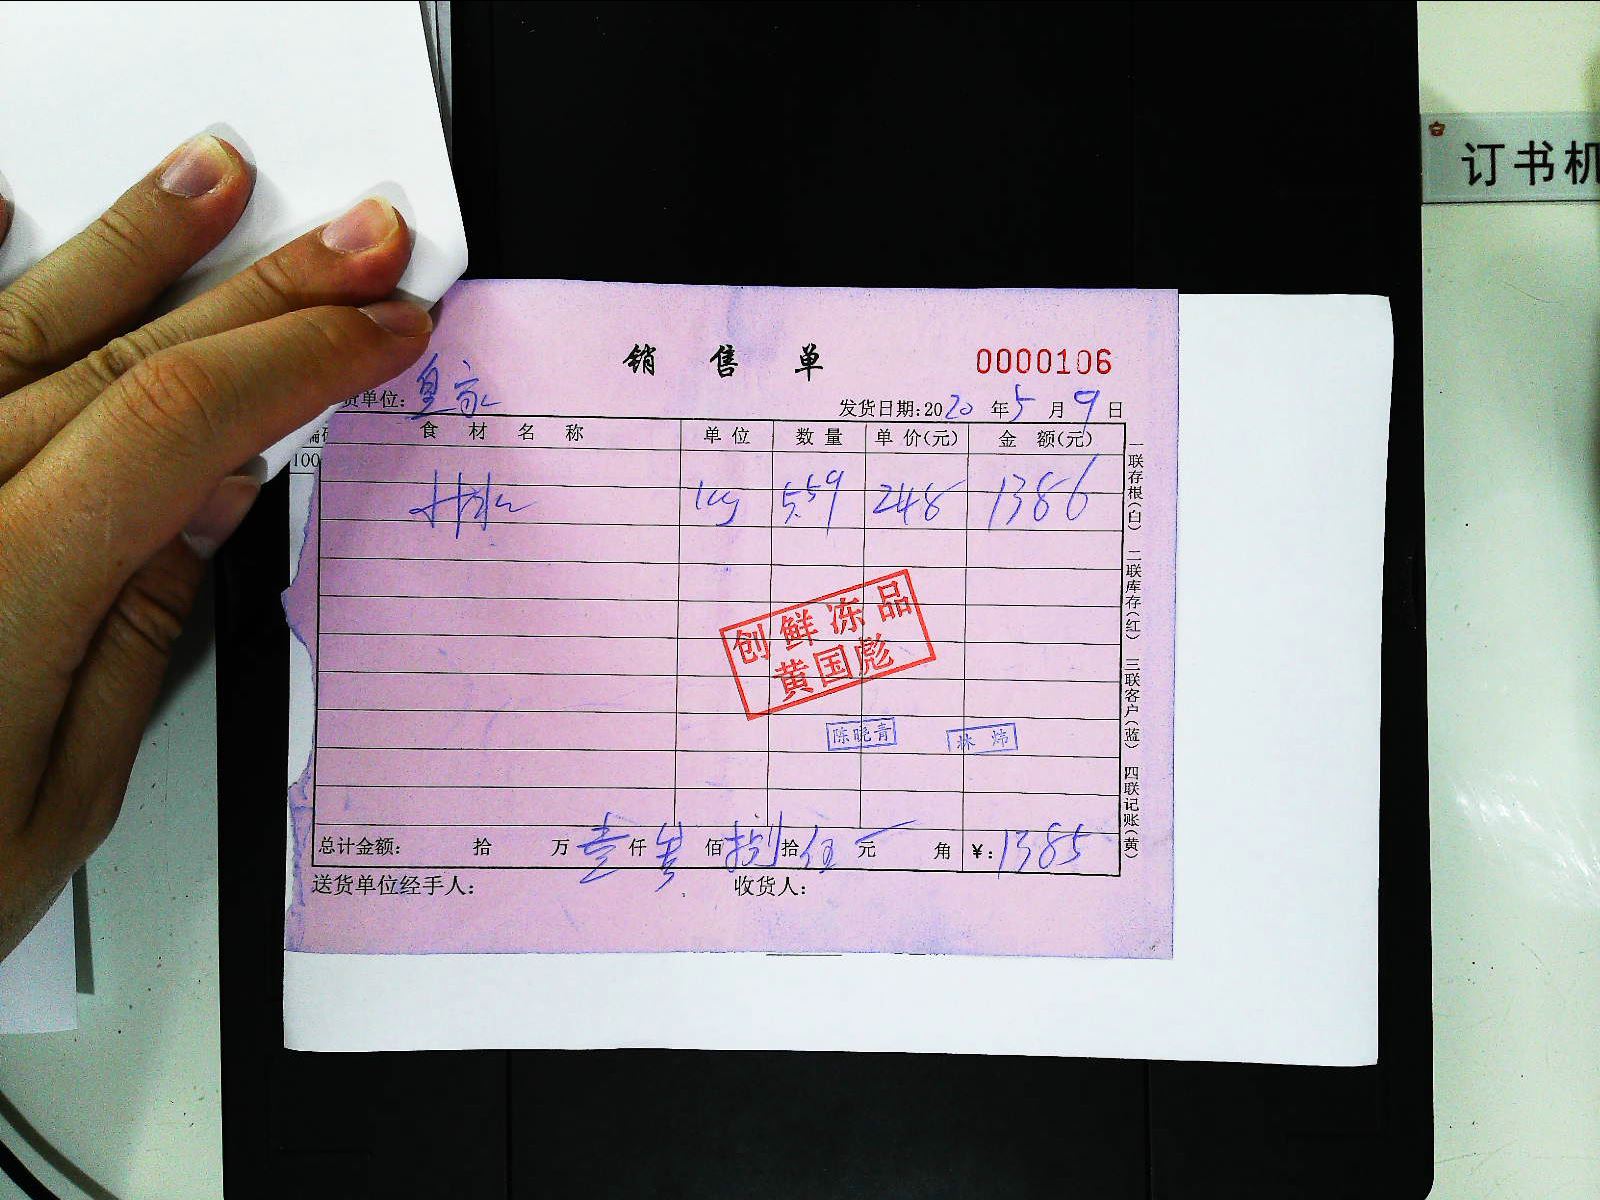 订书机
销售单 0000106
货单位: 皇家 发货日期:2020年5月9日
食材名称 单位 数量 单价(元) 金额(元)
100
kg 5.59 248 1386
创鲜冻品
黄国彪
陈晓青 林炜
总计金额: 拾 万壹仟 佰捌拾伍元 角 ¥:1385
送货单位经手人: 收货人:
一联存根(白) 二联库存(红) 三联客户(蓝) 四联记账(黄)